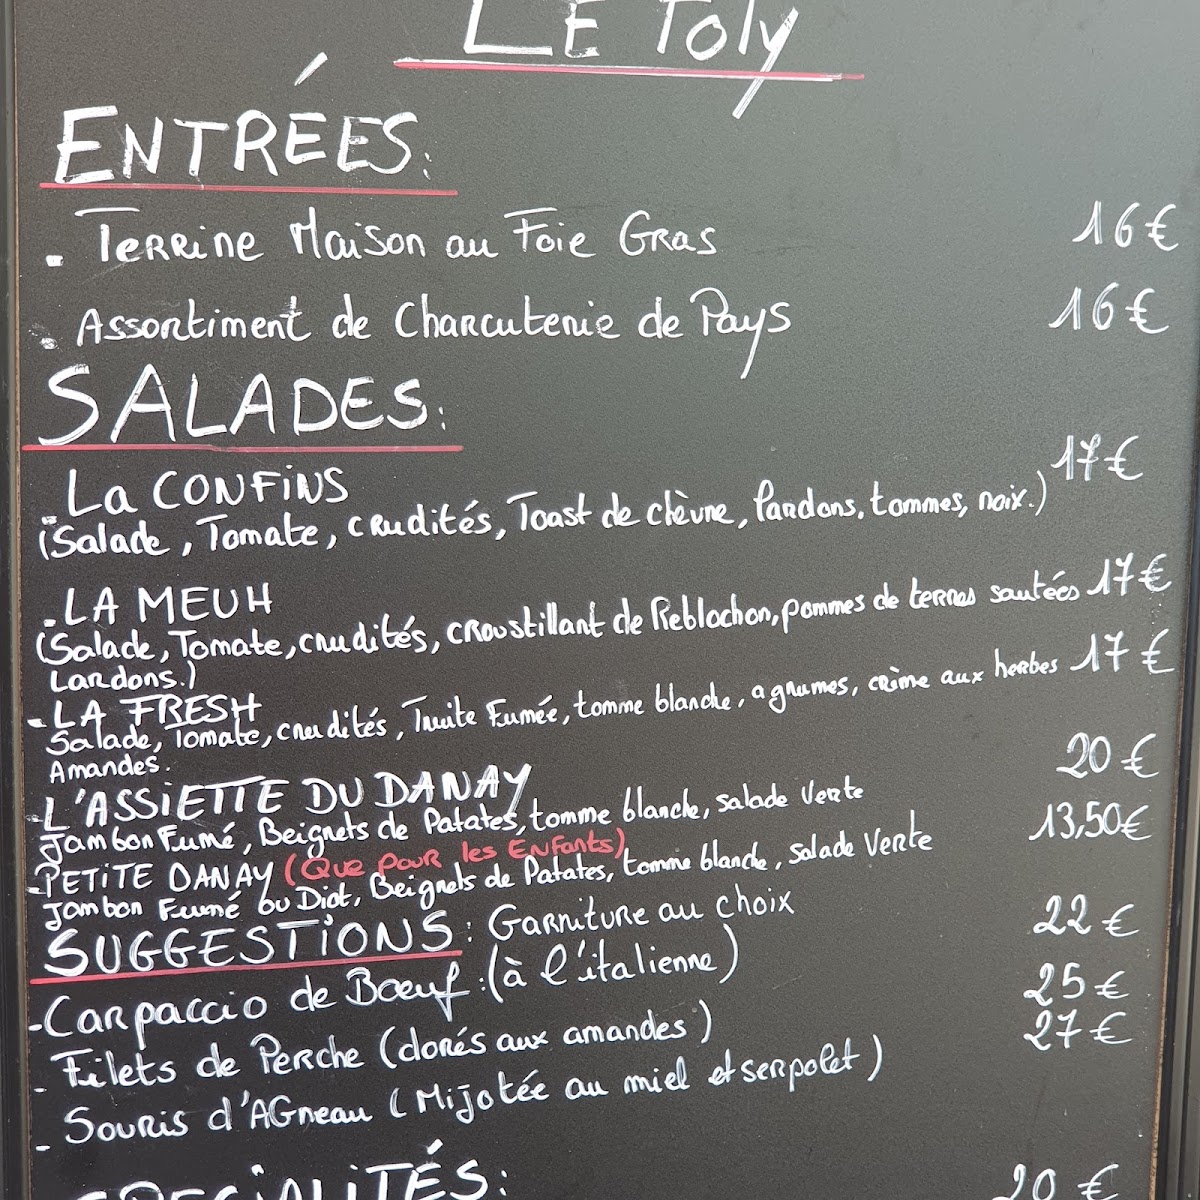 LE Toly
ENTRÉES:
. Terrine Maison au Foie Gras 16€
. Assortiment de Charcuterie de Pays 16€
SALADES:
. La CONFINS 17€
(Salade, Tomate, crudités, Toast de chèvre, lardons, tommes, noix.)
. LA MEUH
(Salade, Tomate, crudités, croustillant de Reblochon, pommes de terres sautées 17€
Lardons.)
- LA FRESH
Salade, Tomate, crudités, Truite Fumée, tomme blanche, agrumes, crème aux herbes 17€
Amandes.
L'ASSIETTE DU DANAY 20€
Jambon Fumé, Beignets de Patates, tomme blanche, salade Verte
- PETITE DANAY (Que pour les Enfants) 13,50€
Jambon Fumé ou Diot, Beignets de Patates, tomme blanche, salade Verte
SUGGESTIONS: Garniture au choix
- Carpaccio de Bœuf: (à l'italienne) 22€
- Filets de Perche (dorés aux amandes) 25€
- Souris d'Agneau (Mijotée au miel et serpolet) 27€
SPECIALITÉS: 20€